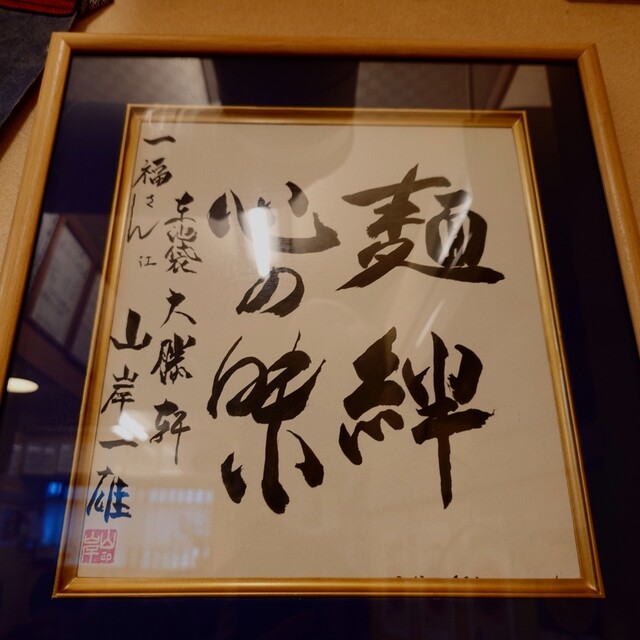 麺絆
心の味
東池袋 大勝軒
山岸一雄
一福さん江